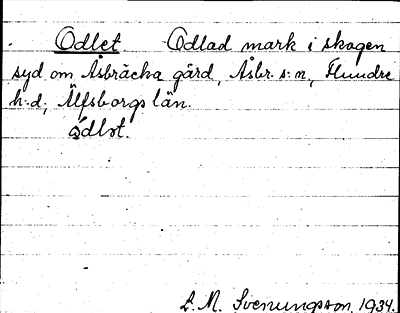 Odlet Odlad mark i skogen
syd om Åsbräcka gård, Åsbr. s:n, Flundre
h:d, Älfsborgs län.
ódlɘt.
L. M. Svenungsson 1934.